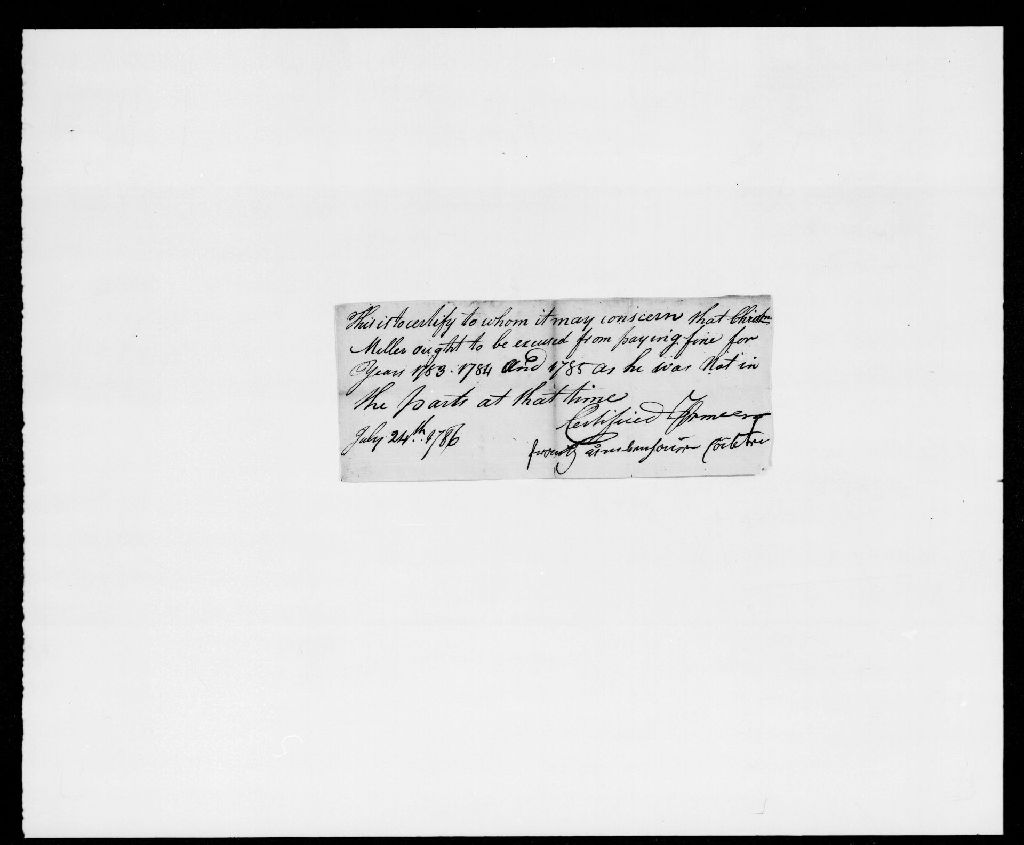 This is to certify to whom it may conscern that Christn
Miller ought to be excused from paying fine for
Years 1783. 1784 and 1785 as he was Not in
the parts at that time
Certified
July 24th. 1786